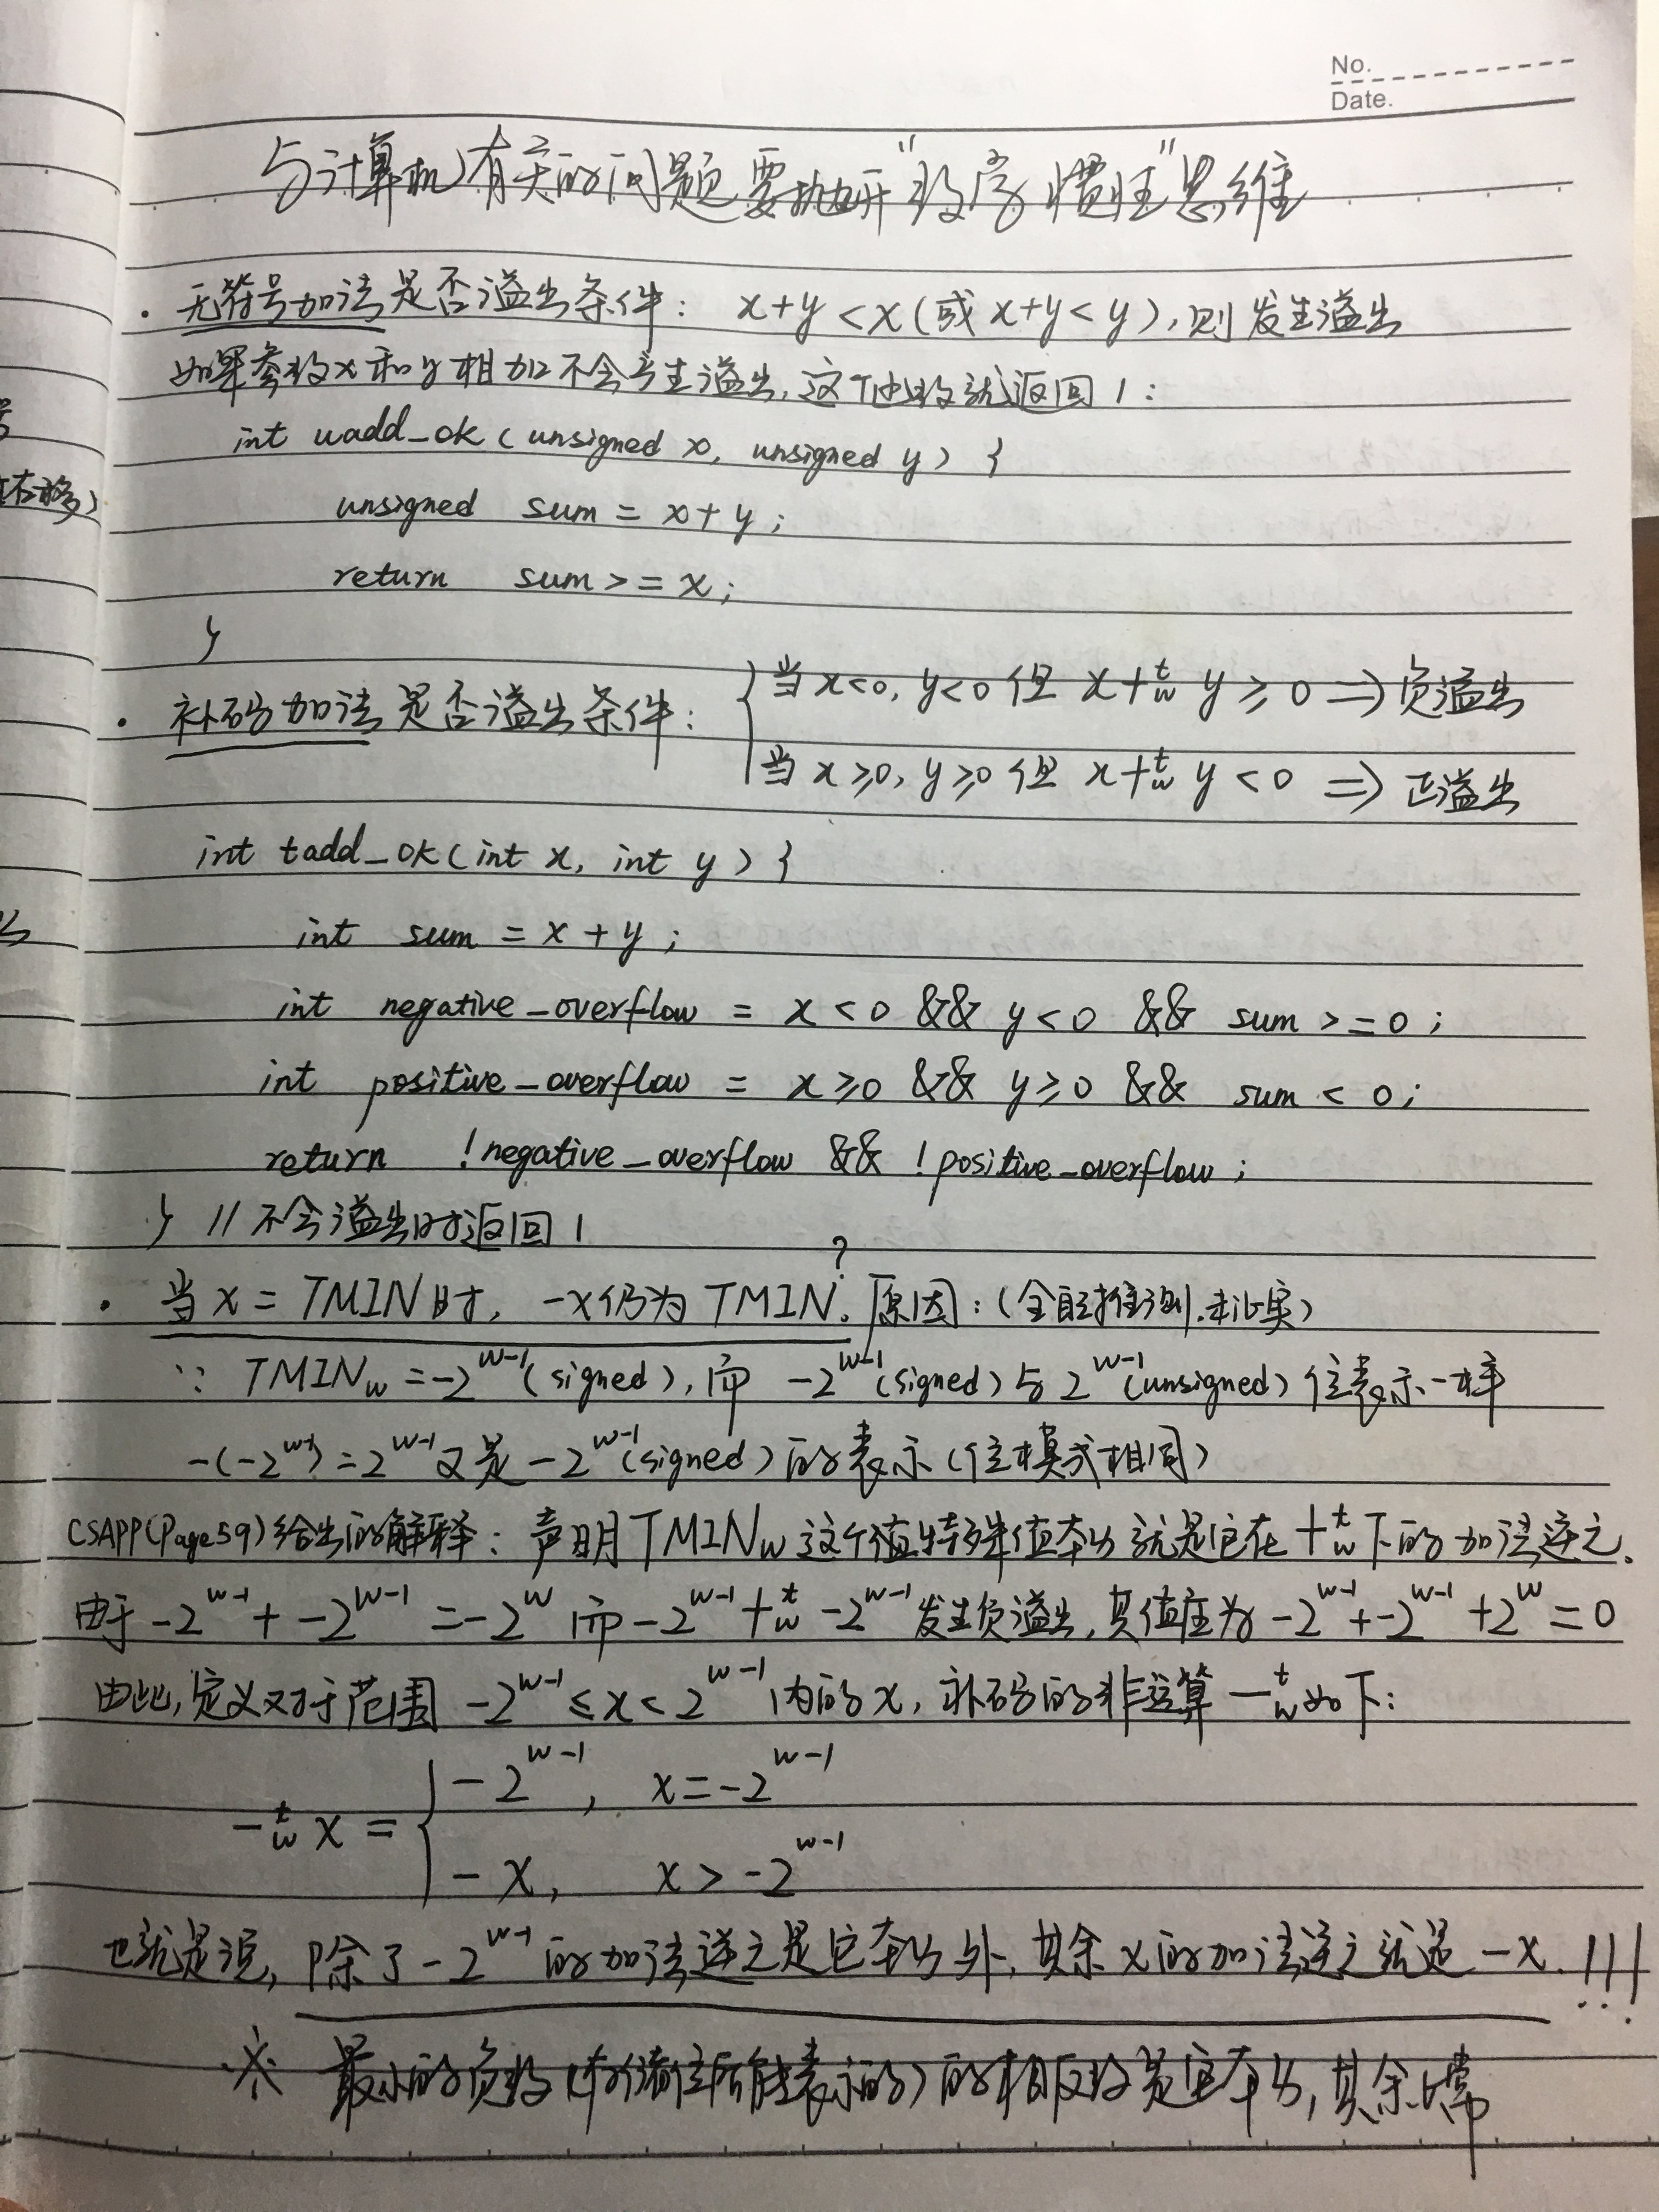 No.
Date.
与计算机有关的问题要抛开"数学惯性"思维
· 无符号加法是否溢出条件: x+y<x(或x+y<y),则发生溢出
如果参数x和y相加不会产生溢出,这个函数就返回1:
int uadd_ok(unsigned x, unsigned y) {
unsigned sum = x+y;
return sum>=x;
}
· 补码加法是否溢出条件: { 当x<0, y<0 但 x+ᵗ_w y ≥ 0 ⇒ 负溢出
当x≥0, y≥0 但 x+ᵗ_w y < 0 ⇒ 正溢出
int tadd_ok(int x, int y) {
int sum = x + y;
int negative_overflow = x<0 && y<0 && sum >=0;
int positive_overflow = x≥0 && y≥0 && sum < 0;
return !negative_overflow && !positive_overflow;
} //不会溢出时返回1
· 当x=TMIN时, -x仍为TMIN.? 原因:(全自推测,未证实)
∵ TMIN_w = -2^{w-1}(signed),而 -2^{w-1}(signed)与2^{w-1}(unsigned)位表示一样
-(-2^{w-1})=2^{w-1}又是-2^{w-1}(signed)的表示(位模式相同)
CSAPP(Page59)给出的解释: 声明TMIN_w这个值特殊值本身就是它在+ᵗ_w下的加法逆元.
由于-2^{w-1}+-2^{w-1}=-2^w 而-2^{w-1}+ᵗ_w-2^{w-1}发生负溢出,其值应为-2^{w-1}+-2^{w-1}+2^w=0
由此,定义对于范围-2^{w-1}≤x<2^{w-1}内的x,补码的非运算-ᵗ_w如下:
-ᵗ_w x = { -2^{w-1}, x=-2^{w-1}
-x, x>-2^{w-1}
也就是说,除了-2^{w-1}的加法逆元是它本身外,其余x的加法逆元就是-x.!!!
※ 最小的负数(有符号位所能表示的)的相反数是它本身,其余正常